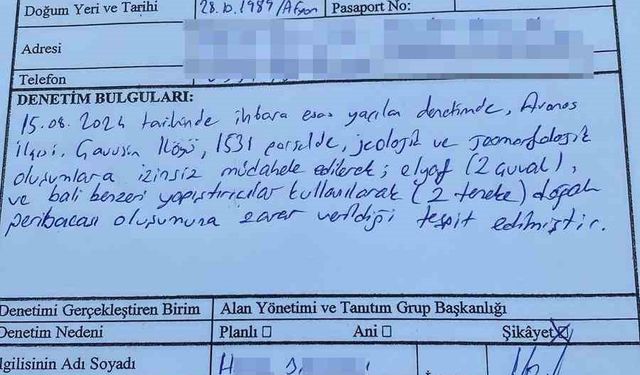 Doğum Yeri ve Tarihi 28.10.1989/Afyon Pasaport No:
Adresi
Telefon
DENETİM BULGULARI:
15.08.2024 tarihinde ihbara esas yapılan denetimde, Avanos
ilçesi, Çavuşin Köyü, 1531 parselde, jeolojik ve jeomorfolojik
oluşumlara izinsiz müdahele edilerek; elyaf (2 çuval),
ve bali benzeri yapıştırıcılar kullanılarak (2 teneke) doğal
peribacası oluşumuna zarar verildiği tespit edilmiştir.
Denetimi Gerçekleştiren Birim Alan Yönetimi ve Tanıtım Grup Başkanlığı
Denetim Nedeni Planlı ☐ Ani ☐ Şikâyet ☒
lgilisinin Adı Soyadı